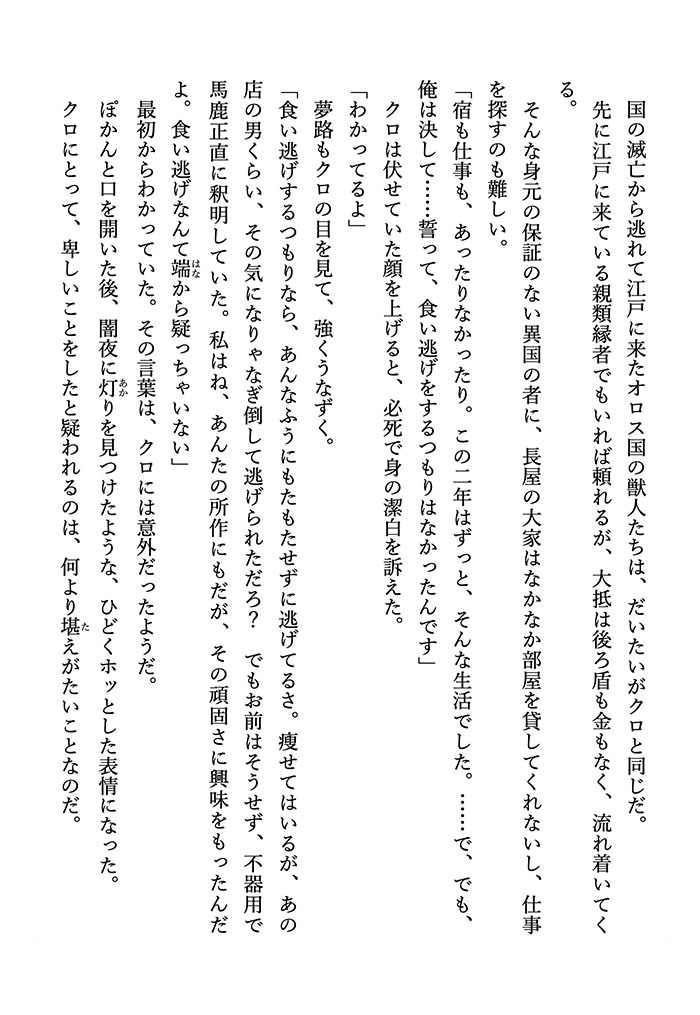 国の滅亡から逃れて江戸に来たオロス国の獣人たちは、だいたいがクロと同じだ。
先に江戸に来ている親類縁者でもいれば頼れるが、大抵は後ろ盾も金もなく、流れ着いてく
る。
そんな身元の保証のない異国の者に、長屋の大家はなかなか部屋を貸してくれないし、仕事
を探すのも難しい。
「宿も仕事も、あったりなかったり。この二年はずっと、そんな生活でした。……で、でも、
俺は決して……誓って、食い逃げをするつもりはなかったんです」
クロは伏せていた顔を上げると、必死で身の潔白を訴えた。
「わかってるよ」
夢路もクロの目を見て、強くうなずく。
「食い逃げするつもりなら、あんなふうにもたもたせずに逃げてるさ。痩せてはいるが、あの
店の男くらい、その気になりゃなぎ倒して逃げられただろ？　でもお前はそうせず、不器用で
馬鹿正直に釈明していた。私はね、あんたの所作にもだが、その頑固さに興味をもったんだ
よ。食い逃げなんて端はなから疑っちゃいない」
最初からわかっていた。その言葉は、クロには意外だったようだ。
ぽかんと口を開いた後、闇夜に灯あかりを見つけたような、ひどくホッとした表情になった。
クロにとって、卑しいことをしたと疑われるのは、何より堪たえがたいことなのだ。